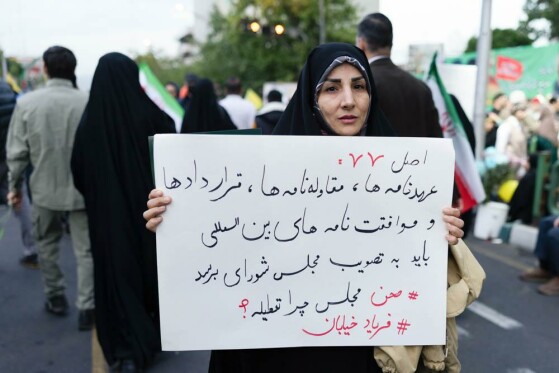 اصل ۷۷:
عهدنامه ها، مقاوله‌نامه ها، قراردادها
و موافقت نامه های بین المللی
باید به تصویب مجلس شورای برسد
# صحن مجلس چرا تعطیله؟
# فریاد خیابان